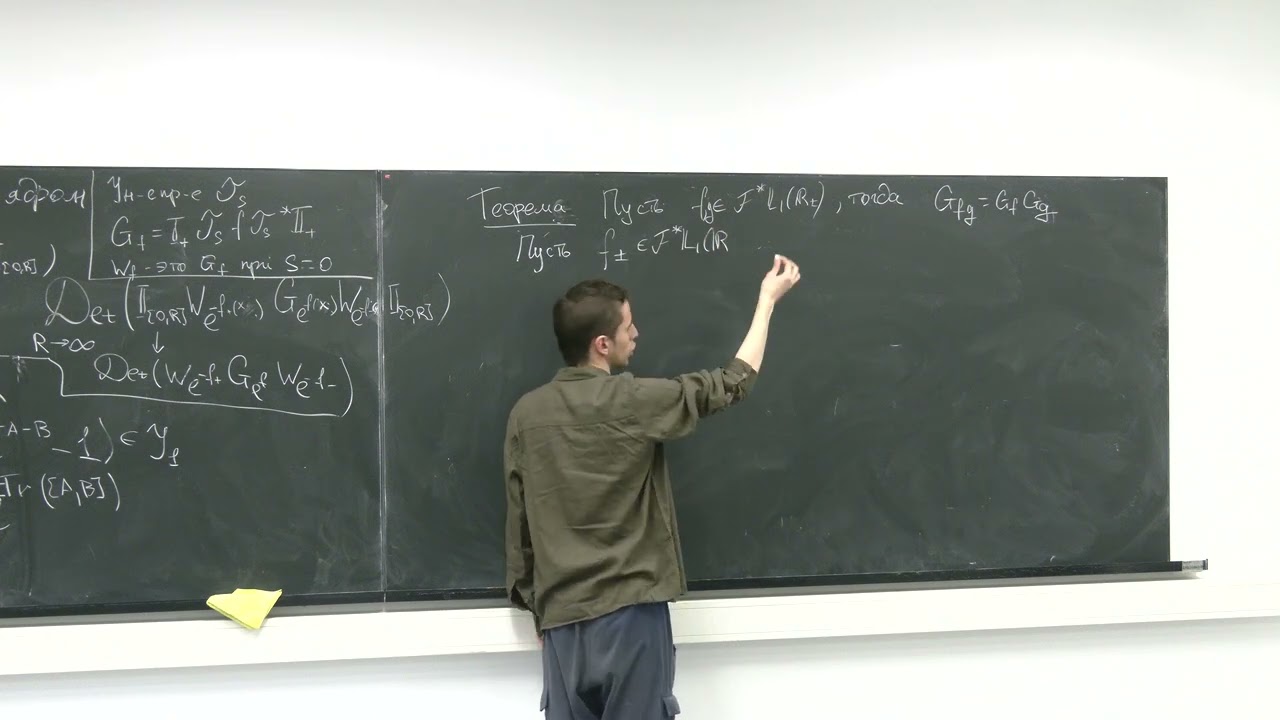 ядром
Ун-е пр-е 𝒯_s
G_f = 𝕀_+ 𝒯_s f 𝒯_s^* 𝕀_+
W_f - это G_f при S=0
[0,R])
Det(𝕀_{[0,R]} W_{e^{-f_+(x)}} G_{e^{f(x)}} W_{e^{-f_-}} 𝕀_{[0,R]})
R→∞ ↓
Det(W_{e^{-f_+}} G_{e^f} W_{e^{-f_-}})
-A-B
-1) ∈ 𝒥_1
Tr([A,B])
Теорема Пусть f,g ∈ ℱ^* L_1(ℝ_+), тогда G_{fg} = G_f G_g
Пусть f_± ∈ ℱ^* L_1(ℝ